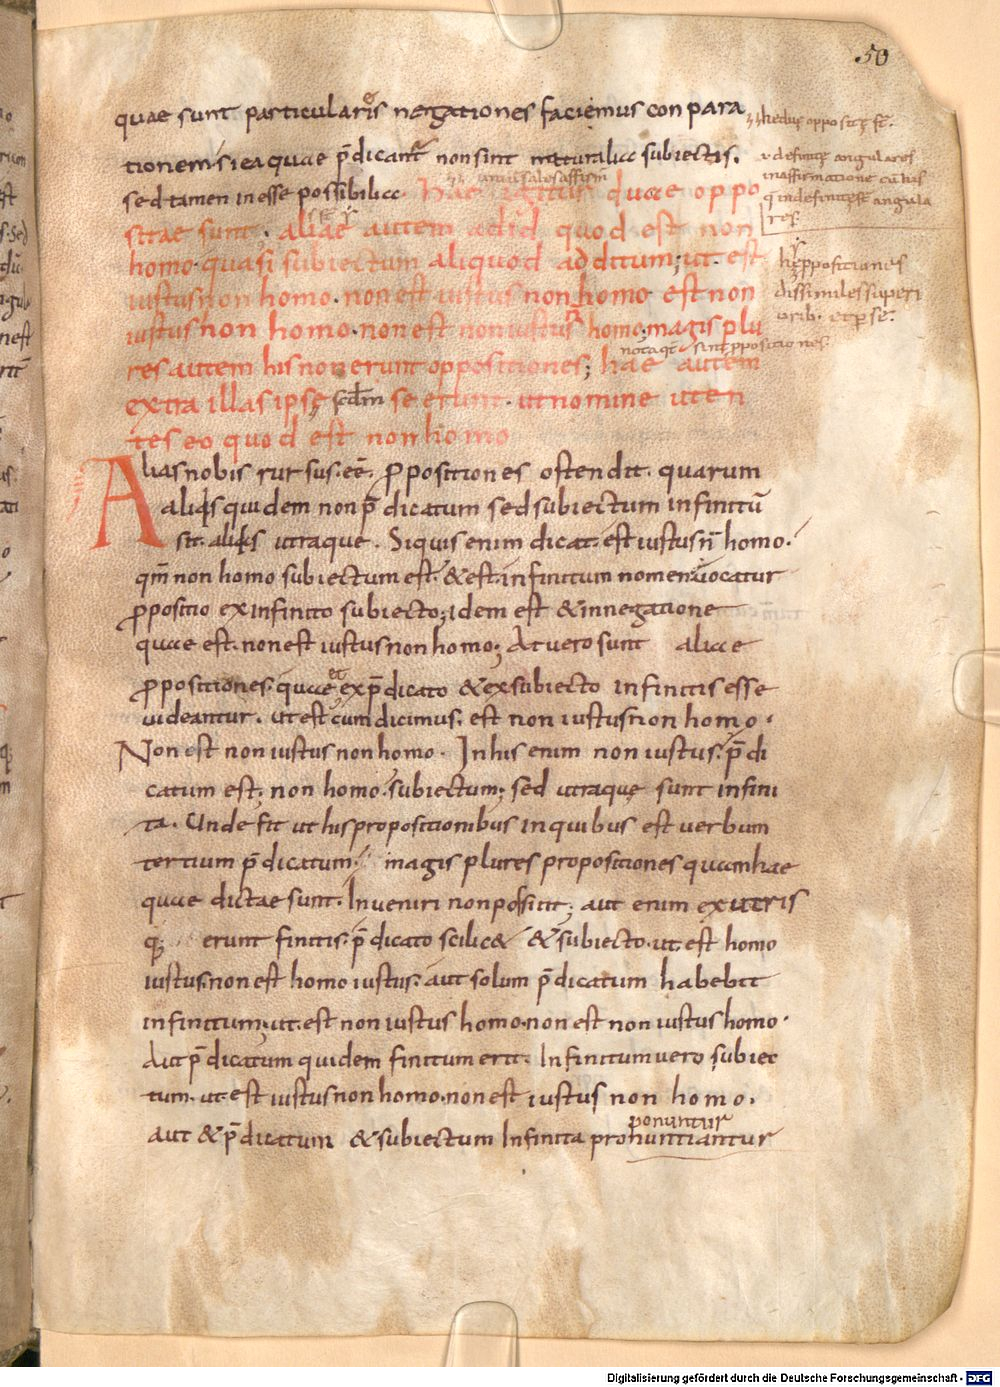 50
quae sunt particulares negationes faciemus conpara
tionem si ea quae p̄dicant̄ non sint naturaliae subiectis.
sed tamen inesse possibiliae Hae igitur duae oppo
sitae sunt. aliae autem ad id quod est non
homo. quasi subiectum aliquod additum; ut. est
iustus non homo. non est iustus non homo est non
iustus non homo. non est non iustus homo; magis plu
res autem his non erunt oppositiones; hae autem
extra illas ipsę scdm se erunt. ut nomine uten
tes eo quod est non homo
Alias nobis rursus. eē. ꝓpositiones ostendit. quarum
aliꝗs quidem non p̄dicatum sed subiectum infinitū
sit. aliꝗs utraque. Siquis enim dicat. est iustus n̄ homo.
qm̄ non homo subiectum est. & est infinitum nomen. uocatur
ꝓpositio ex infinito subiecto; idem est & in negatione
quae est. non est iustus non homo; At uero sunt aliae
ꝓpositiones. quae et ex p̄dicato & ex subiecto infinitis esse
uideantur. ut est cum dicimus. est non iustus non homo.
Non est non iustus non homo. In his enim non iustus. p̄di
catum est. non homo. subiectum; sed utraquę sunt infini
ta. Unde fit ut his propositionibus in quibus est uerbum
tertium p̄dicatum. magis plures propositiones quam hae
quae dictae sunt. Inueniri non possint; aut enim ex utris
q; erunt finitis. p̄dicato scilic& & subiecto. ut. est homo
iustus. non est homo iustus. aut solum p̄dicatum habebit
infinitum; ut. est non iustus homo. non est non iustus homo.
Aut p̄dicatum quidem finitum erit. Infinitum uero subiec
tum. ut. est iustus non homo. non est iustus non homo.
ponuntur
aut & p̄dicatum & subiectum Infinita pronuntiantur
hędus oppositę sē.
definitę angulares
in affirmatione cū his
ꝗ indefinitę sē angula
res.
hę ꝓpositiones
dissimiles superi
orib. et per se.
Digitalisierung gefördert durch die Deutsche Forschungsgemeinschaft - DFG